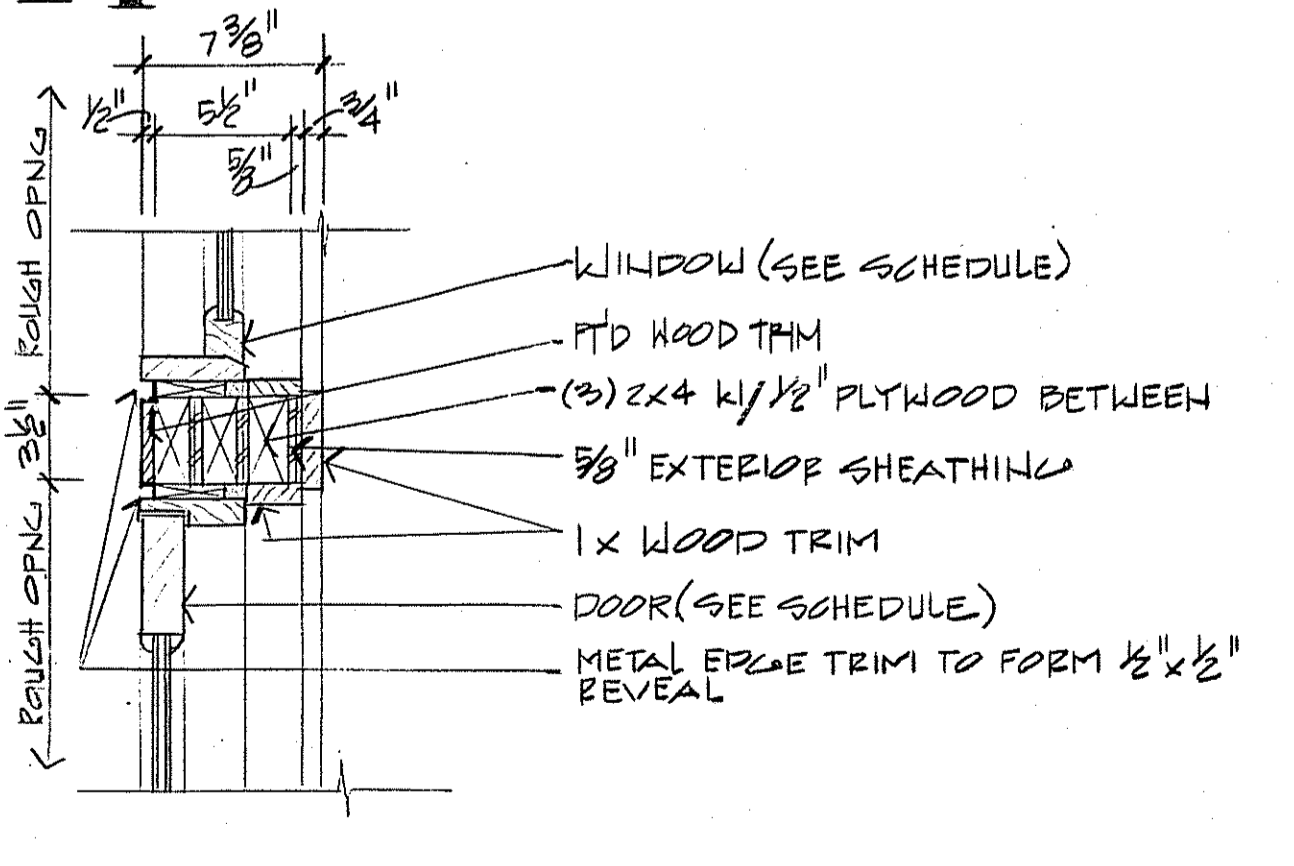 7 3/8"
1/2"
5 1/2"
3/4"
5/8"
ROUGH OPNG
3 1/2"
ROUGH OPNG
WINDOW (SEE SCHEDULE)
PT'D WOOD TRIM
(3) 2x4 W/ 1/2" PLYWOOD BETWEEN
5/8" EXTERIOR SHEATHING
1 x WOOD TRIM
DOOR (SEE SCHEDULE)
METAL EDGE TRIM TO FORM 1/2" x 1/2"
REVEAL